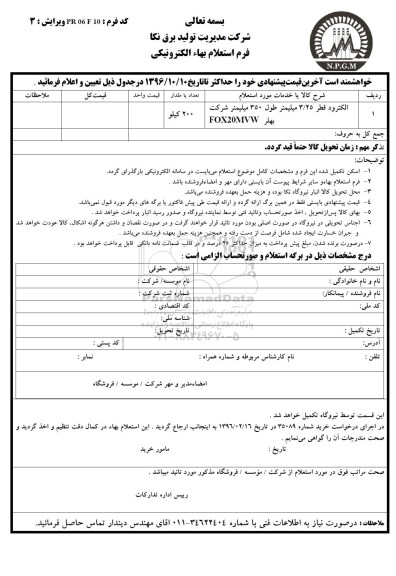 بسمه تعالی
شرکت مدیریت تولید برق نکا
فرم استعلام بهاء الکترونیکی
کد فرم : PR 06 F 10 ویرایش : ۳
N.P.G.M
خواهشمند است آخرین قیمت پیشنهادی خود را حداکثر تا تاریخ ۱۳۹۶/۱۰/۱۰ در جدول ذیل تعیین و اعلام فرمائید .
ردیف شرح کالا یا خدمات مورد استعلام تعداد یا مقدار قیمت واحد قیمت کل ملاحظات
۱ الکترود قطر ۳/۲۵ میلیمتر طول ۳۵۰ میلیمتر شرکت ۲۰۰ کیلو
بهلر FOX20MVW
جمع کل به حروف:
تذکر مهم : زمان تحویل کالا حتماً قید گردد.
توضیحات:
۱- اسکن تکمیل شده این فرم و مشخصات کامل موضوع استعلام می‌بایست در سامانه الکترونیکی بارگذاری گردد.
۲- فرم استعلام بهاء و سایر شرایط پیوست آن بایستی دارای مهر و امضاء فروشنده باشد .
۳- محل تحویل کالا انبار نیروگاه نکا بوده و هزینه حمل بعهده فروشنده می‌باشد.
۴- قیمت پیشنهادی بایستی فقط در همین برگه ارائه گردد و ارائه قیمت طی پیش فاکتور یا برگه های دیگر مورد قبول نمی‌باشد.
۵- بهای کالا پس از تحویل ، اخذ صورتحساب و تائید فنی توسط نماینده نیروگاه و صدور رسید انبار پرداخت خواهد شد .
۶- اجناس تحویلی در نیروگاه در صورت اصلی بودن مورد تائید قرار خواهند گرفت و در صورت نقصان و داشتن هرگونه اشکال، کالا عودت خواهد شد
و جبران خسارت ایجاد شده شامل فرصت از دست رفته و همچنین هزینه حمل بعهده فروشنده می‌باشد .
۷- درصورت برنده شدن، مبلغ پیش پرداخت به میزان حداکثر ۲۵ درصد و در قالب ضمانت نامه بانکی قابل پرداخت خواهد بود .
درج مشخصات ذیل در برگه استعلام و صورتحساب الزامی است :
اشخاص حقیقی اشخاص حقوقی
نام و نام خانوادگی : نام موسسه/ شرکت :
نام فروشنده / پیمانکار: شماره ثبت شرکت :
کد ملی: کد اقتصادی :
شناسه ملی:
تاریخ تکمیل : تاریخ تحویل:
آدرس: کد پستی :
تلفن : نام کارشناس مربوطه و شماره همراه : نمابر :
امضاء مدیر و مهر شرکت / موسسه / فروشگاه
این قسمت توسط نیروگاه تکمیل خواهد شد .
در اجرای درخواست خرید شماره ۳۵۰۸۹ در تاریخ ۱۳۹۶/۰۲/۱۶ به اینجانب ارجاع گردید . این استعلام بهاء در کمال دقت تنظیم و اخذ گردید و
صحت مندرجات آن را گواهی می‌نمایم .
تاریخ : مامور خرید
صحت مراتب فوق در مورد استعلام از شرکت / مؤسسه / فروشگاه مذکور مورد تائید میباشد .
رییس اداره تدارکات
ملاحظات : درصورت نیاز به اطلاعات فنی با شماره ۳۴۶۲۲۴۰۴-۰۱۱ آقای مهندس دیندار تماس حاصل فرمائید.